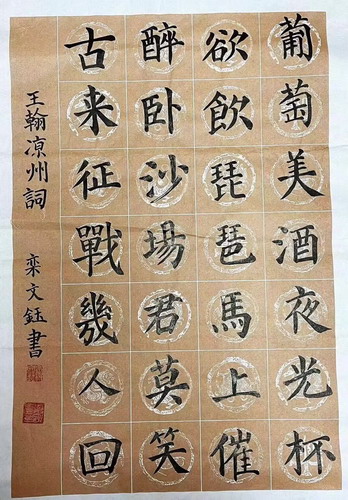 葡萄美酒夜光杯
欲飲琵琶馬上催
醉卧沙場君莫笑
古来征戰幾人回
王翰涼州詞
栾文鈺書